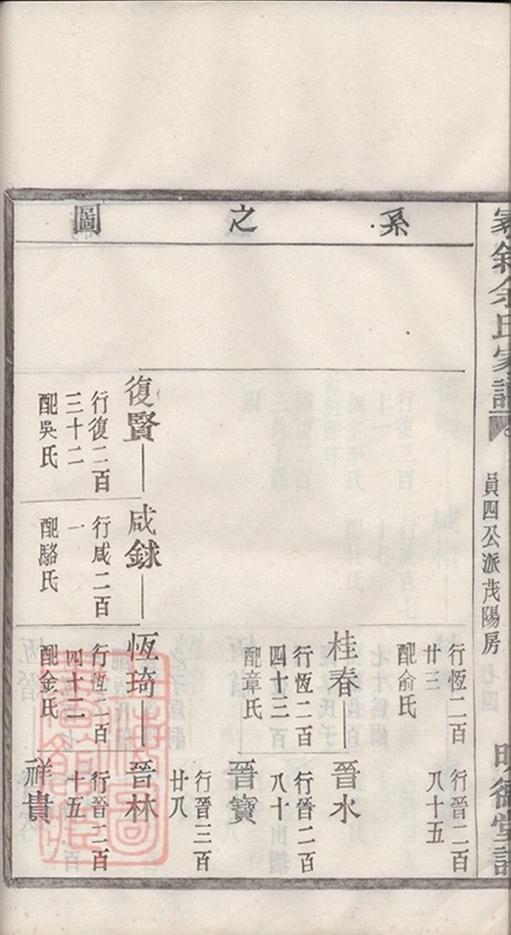 余氏家譜
員四公派茂陽房
明德堂
系之圖
復賢
行復二百
三十二
配吳氏
咸銶
行咸二百
一
配駱氏
行恆二百
廿三
配俞氏
桂春
行恆二百
四十三
配章氏
恆琦
行恆二百
四十二
配金氏
行晉二百
八十五
晉水
行晉二百
八十
晉寶
行晉三百
廿八
晉林
行晉二百
十五
祥貴